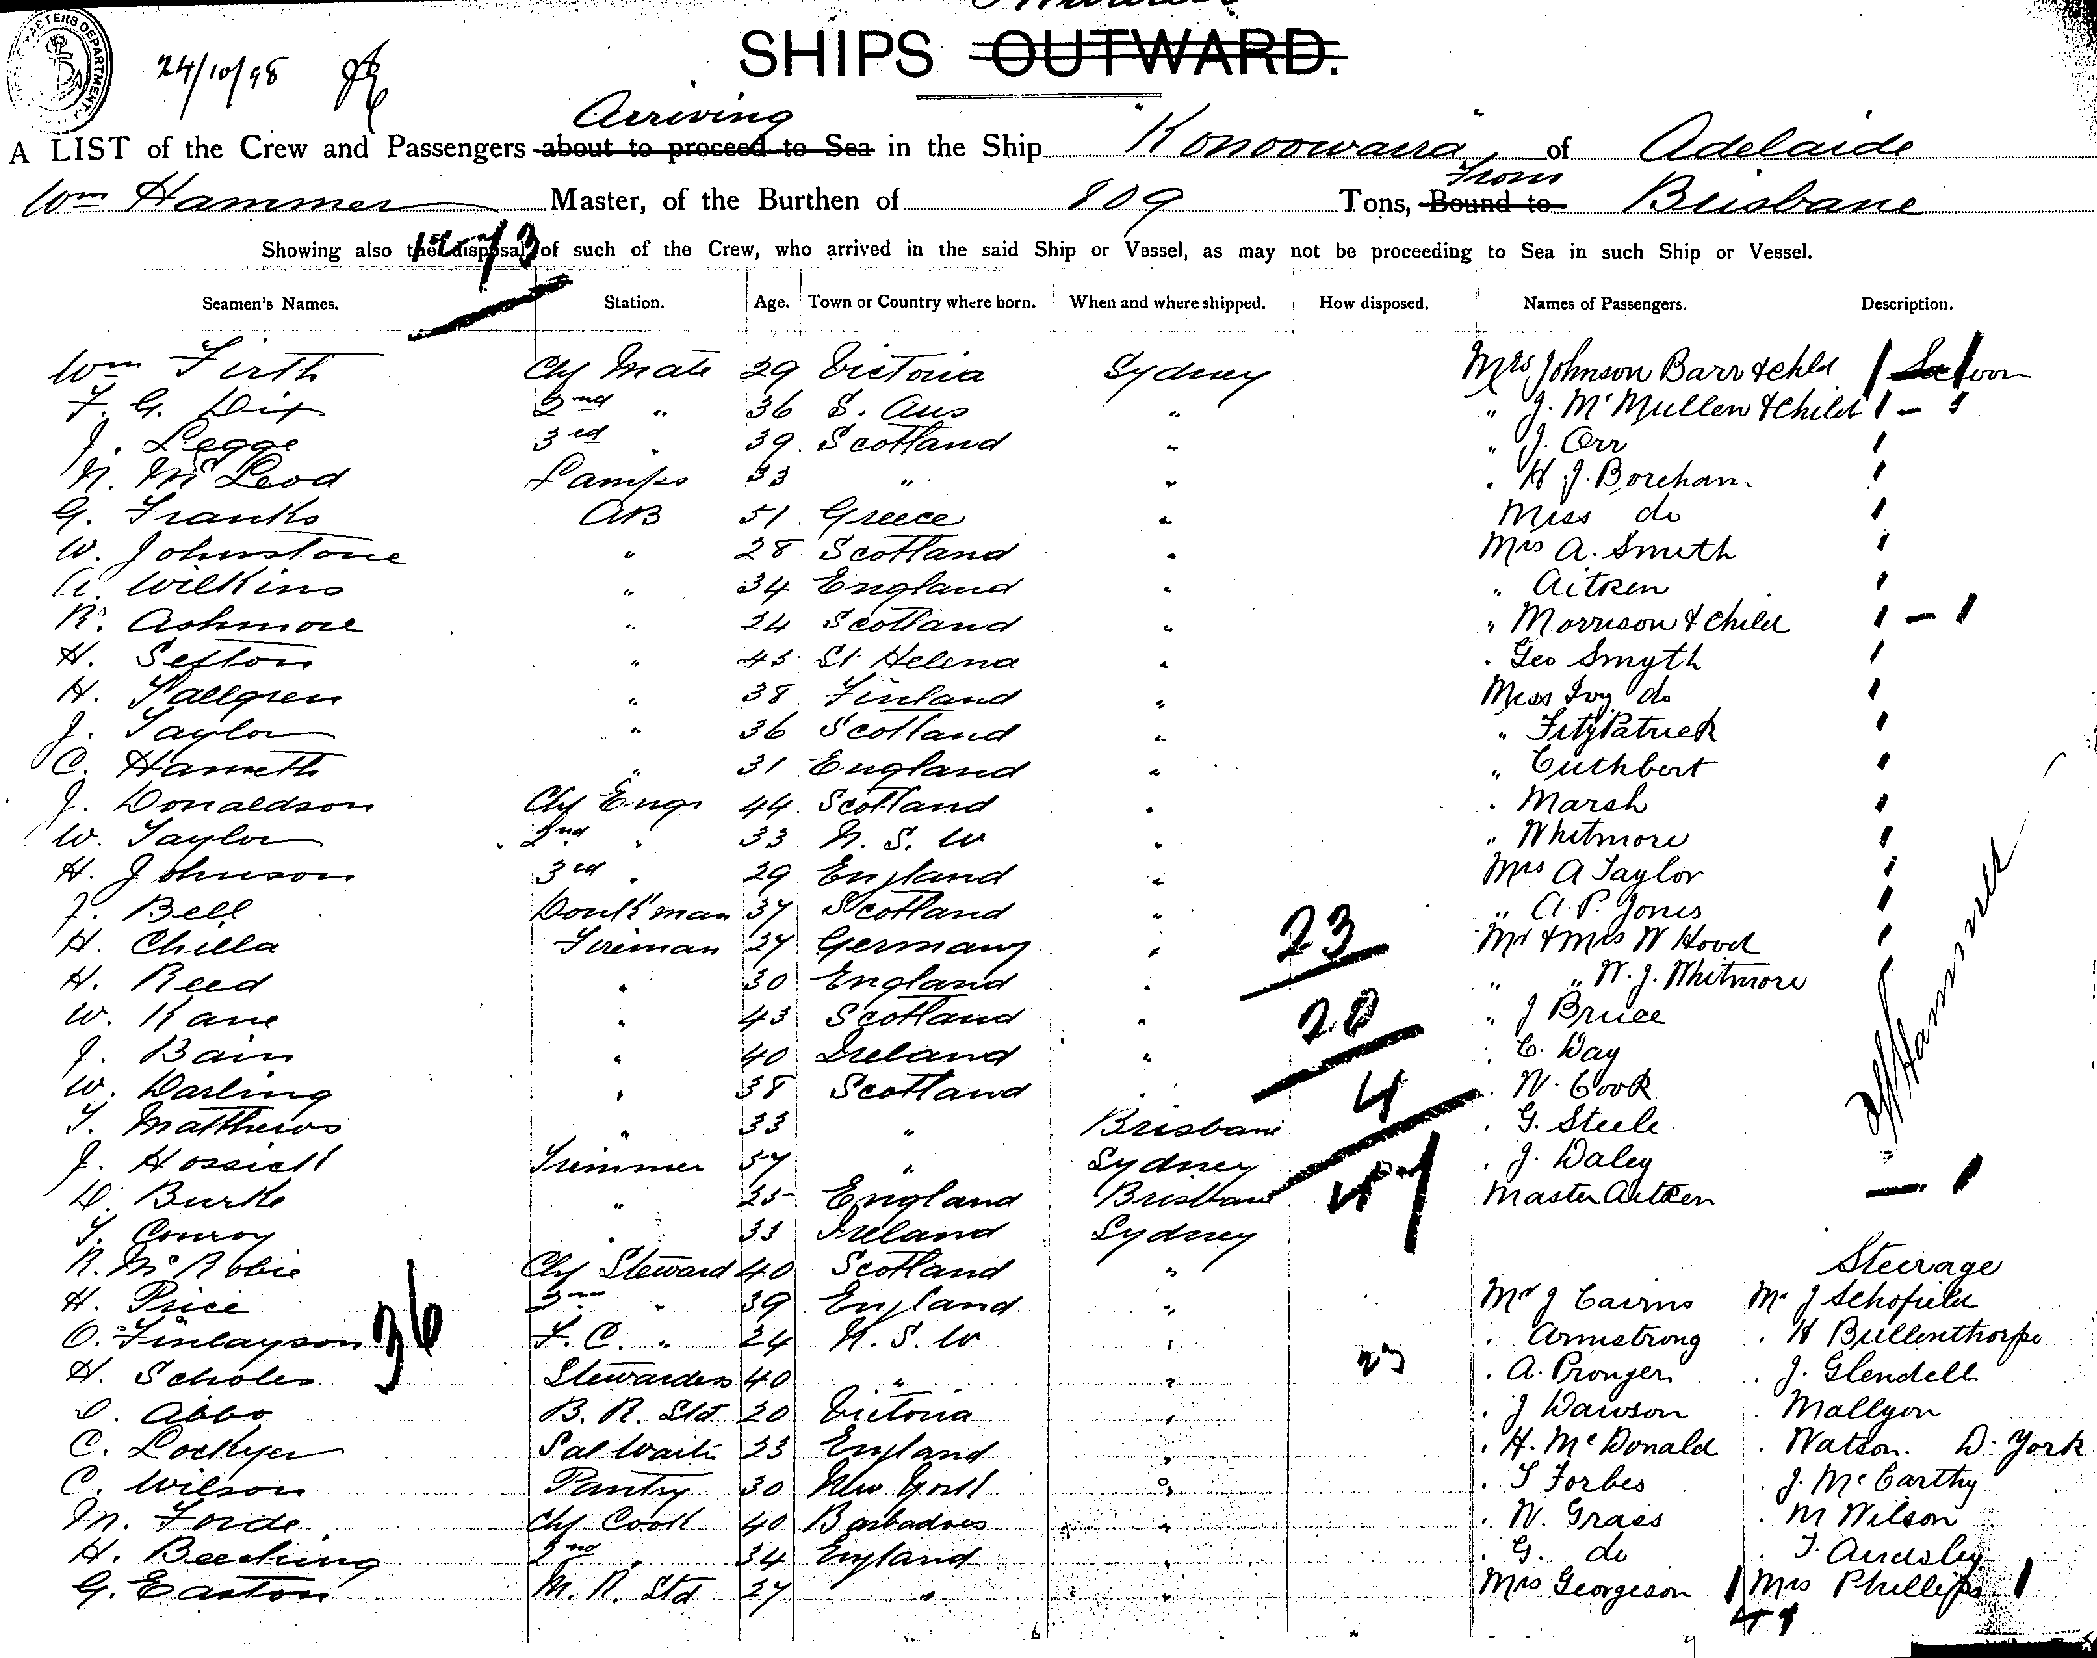 SHIPS OUTWARD.
24/10/98
Arriving
A LIST of the Crew and Passengers about to proceed to Sea in the Ship "Konoowarra" of Adelaide
from
Wm Hammer Master, of the Burthen of 809 Tons, Bound to Brisbane
Showing also the disposal of such of the Crew, who arrived in the said Ship or Vessel, as may not be proceeding to Sea in such Ship or Vessel.
Seamen's Names. Station. Age. Town or Country where born. When and where shipped. How disposed. Names of Passengers. Description.
Wm Firth Chf Mate 29 Victoria Sydney Mrs Johnson Barr & chld Saloon
F. G. Dix 2nd " 36 S. Aus " " J. McMullen & Child
J. Legge 3rd " 39 Scotland " " J. Orr
N. McLeod Lamps 33 " " " H. J. Boreham
G. Franks AB 51 Greece " Miss do
W. Johnstone " 28 Scotland " Mrs A. Smith
A. Wilkins " 34 England " " Aitken
R. Ashmore " 24 Scotland " " Morrison & Child
H. Sefton " 45 St Helena " " Geo Smyth
H. Tallgren " 38 Finland " Miss Ivy do
J. Taylor " 36 Scotland " " FitzPatrick
C. " 31 England " " Cuthbert
J. Donaldson Chf Engr 44 Scotland " " Marsh
W. Taylor 2nd " 33 N. S. W " " Whitmore
H. Johnson 3rd " 29 England " Mrs A Taylor
J. Bell Donk'man 37 Scotland " " A. P. Jones
H. Chilla Fireman 27 Germany " 23 Mr & Mrs W Hood
H. Reed " 30 England " " " W. J. Whitmore
W. Kane " 43 Scotland " 20 " J Bruce
J. Bain " 40 Ireland " " C. Day
W. Darling " 38 Scotland " 4 " W. Cook
T. Matthews " 33 " Brisbane " G. Steele
J. Trimmer 57 " Sydney " J. Daley
D. Burke " 25 England Brisbane 47 Master Aitken
T. Conroy " 33 Ireland Sydney
R. McRobbie Chf Steward 40 Scotland " Steerage
H. Price 2nd " 39 England " Mr J Cairns Mr J Schofield
O. Finlayson 36 F. C. " 24 N. S. W " " Armstrong " H Bullenthorpe
H. Scholes Stewardess 40 " " 23 " A. Pronger " J. Glendell
D. Abbo B. R. Std 20 Victoria " " J Dawson " Mallyon
C. Lockyer Sal Waiter 23 England " " H. McDonald " Watson. D. York
C. Wilson Pantry 30 New York " " T Forbes " J. McCarthy
M. Forde Chf Cook 40 Barbadoes " " W. Grass " M Wilson
H. Beeching 2nd " 34 England " " G. do " T. Audsley
G. Easton M. R. Std 27 " " Mrs Georgeson Mrs Phillips
Wm Hammer